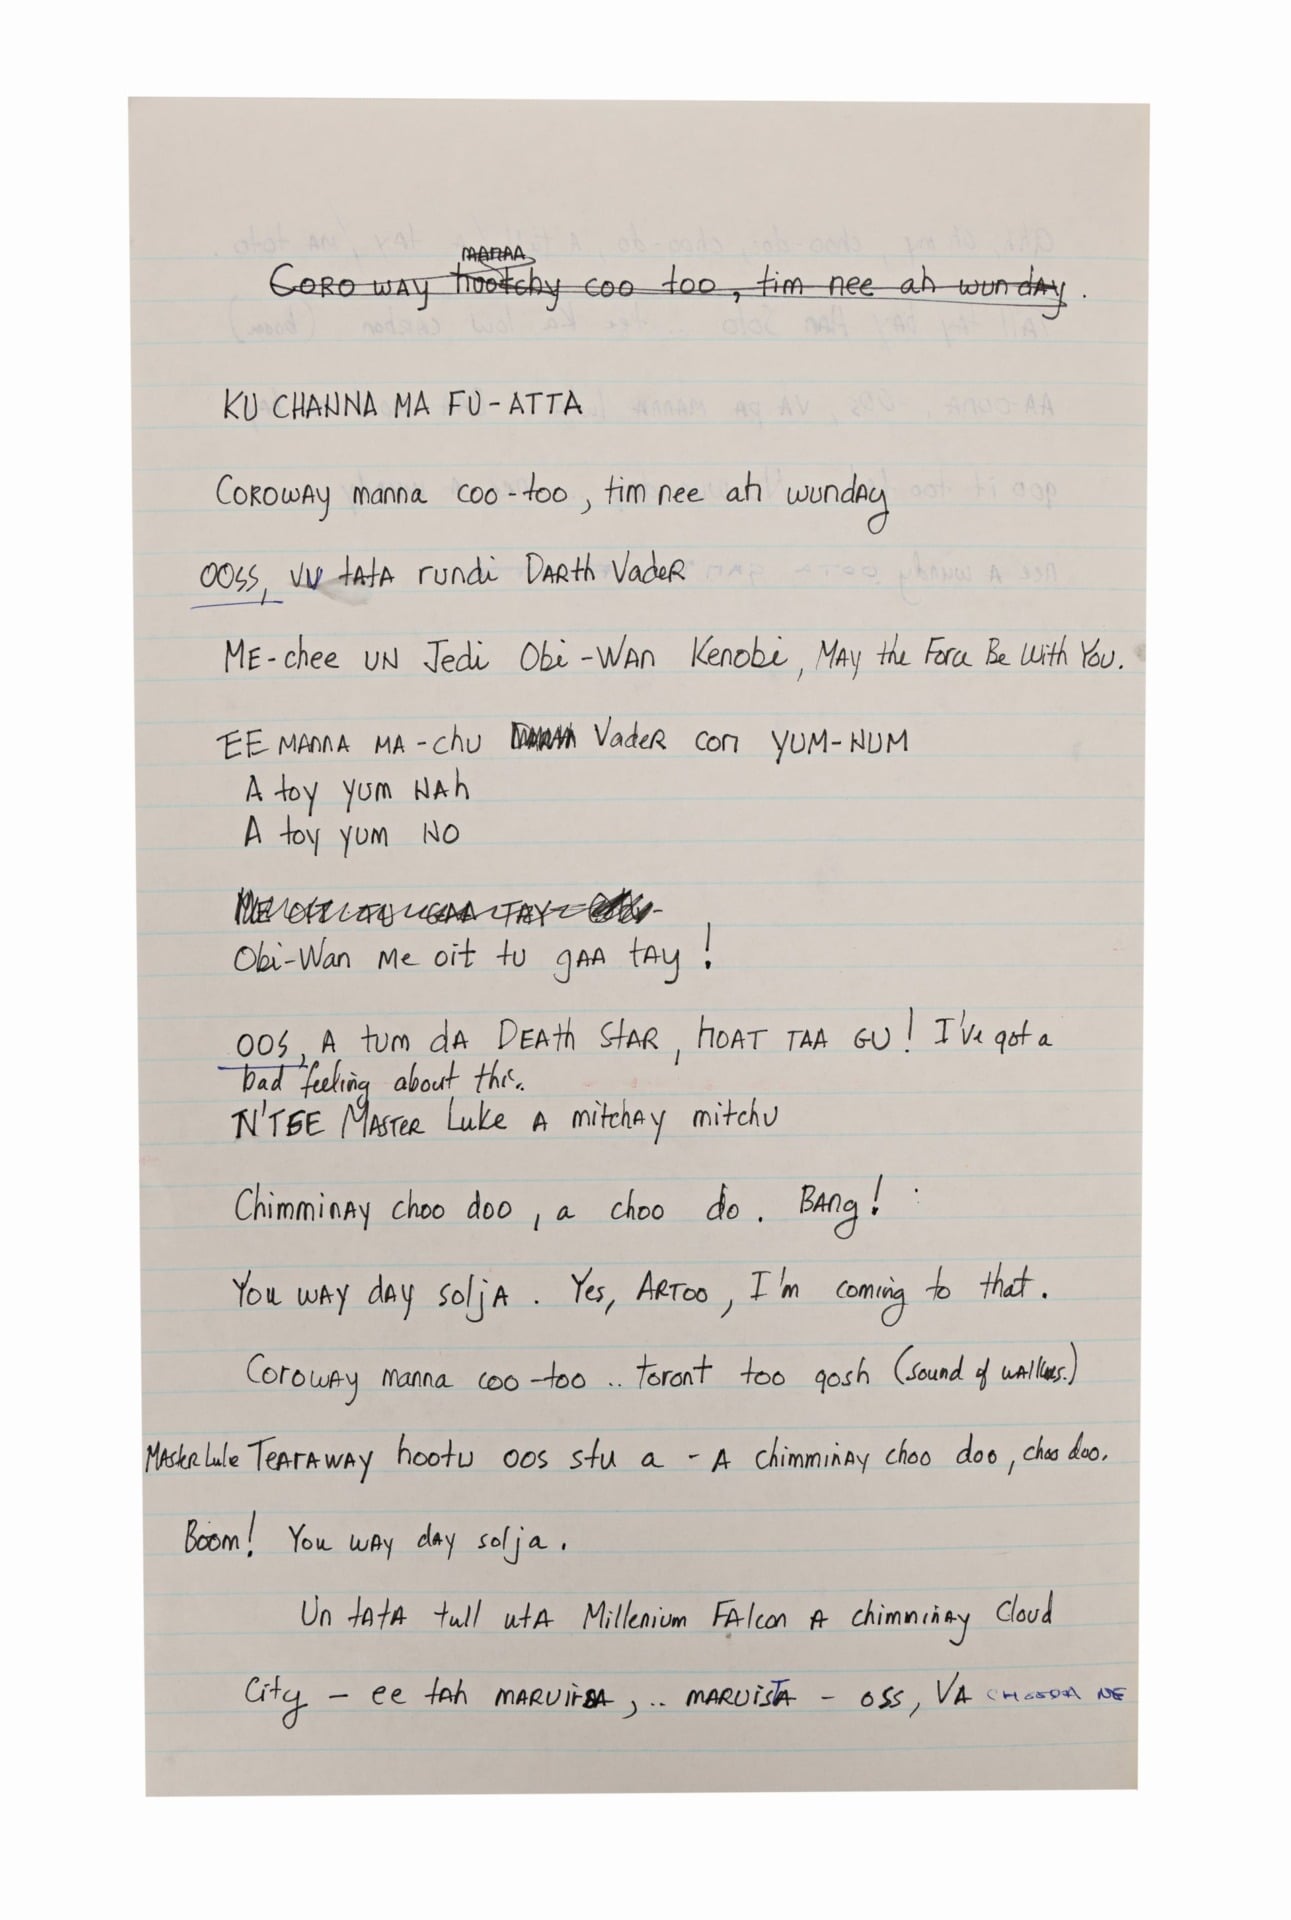 MANAA
CORO WAY hootchy coo too, tim nee ah wunday.
KU CHANNA MA FU-ATTA
COROWAY manna coo-too, tim nee ah wunday
OOSS, VU tATA rundi DARth VadeR
ME-chee UN Jedi Obi-WAN Kenobi, MAY the Force Be With You.
EE MANNA MA-chu Vader con YUM-NUM
A toy yum NAh
A toy yum NO
Obi-Wan Me oit tu gAA tAy!
OOS, A tum dA DEATh StAR, hOAT TAA GU! I've got a
bad feeling about this.
N'TEE MASTER Luke A mitchay mitchu
ChimminAy choo doo, a choo do. BAng!
You WAY dAY soljA. Yes, ARTOO, I'm coming to that.
Coroway manna coo-too .. toront too gosh (sound of walkers.)
MASter Luke TEARAWAY hootu oos stu a - A chimminAy choo doo, choo doo.
Boom! You WAY dAY solja.
Un tAtA tull utA Millenium FAlcon A chimminAy Cloud
City - ee tah , .. MARUISTA - oss, VA